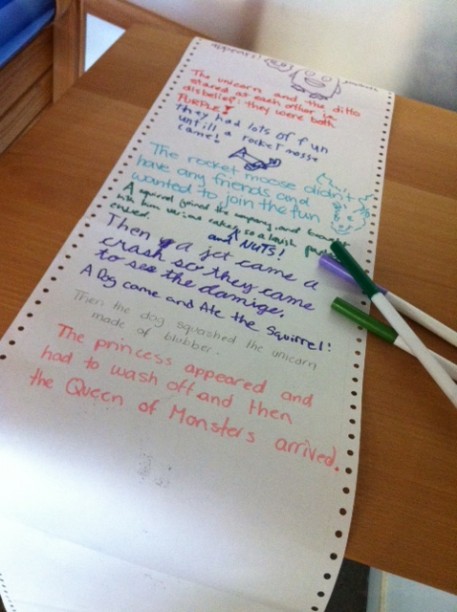 The unicorn and the ditto
stared at each other in
disbelief: they were both
PURPLE!
They had lots of fun
untill a rocket moose
came!
The rocket moose didn't
have any friends and
wanted to join the fun
A squirrel joined the company, and brought
with him various cakes, so a lavish
ensued.
and NUTS!
Then a jet came a
crash so they came
to see the damige.
A Dog came and Ate the Squirrel!
Then the dog squashed the unicorn
made of blubber.
The princess appeared and
had to wash off and then
the Queen of Monsters arrived.